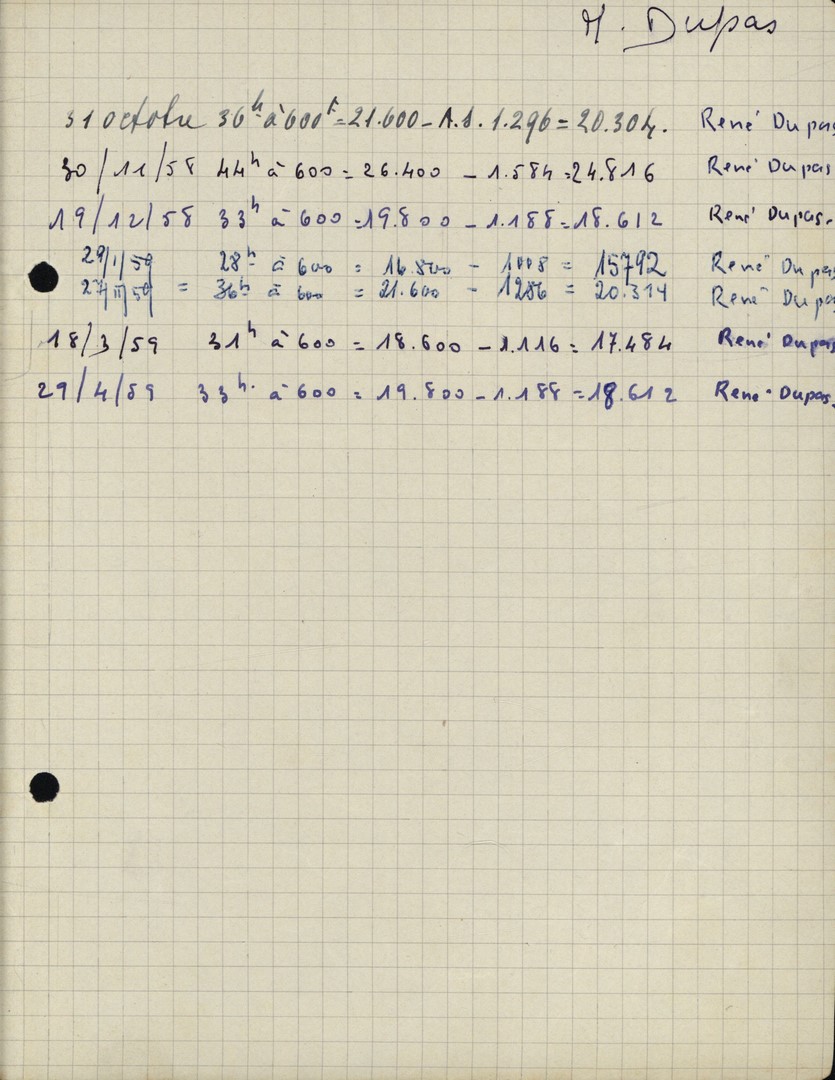 M. Dupas
31 octobre 36h à 600f = 21.600 - A.S. 1.296 = 20.304. René Dupas
30/11/58 44h à 600 = 26.400 - 1.584 = 24.816 René Dupas
19/12/58 33h à 600 = 19.800 - 1.188 = 18.612 René Dupas.
29/I/59 28h à 600 = 16.800 - 1008 = 15792 René Dupas
27/II/59 = 36h à 600 = 21.600 - 1286 = 20.314 René Dupas
18/3/59 31h à 600 = 18.600 - 1.116 = 17.484 René Dupas
29/4/59 33h. à 600 = 19.800 - 1.188 = 18.612 René Dupas.